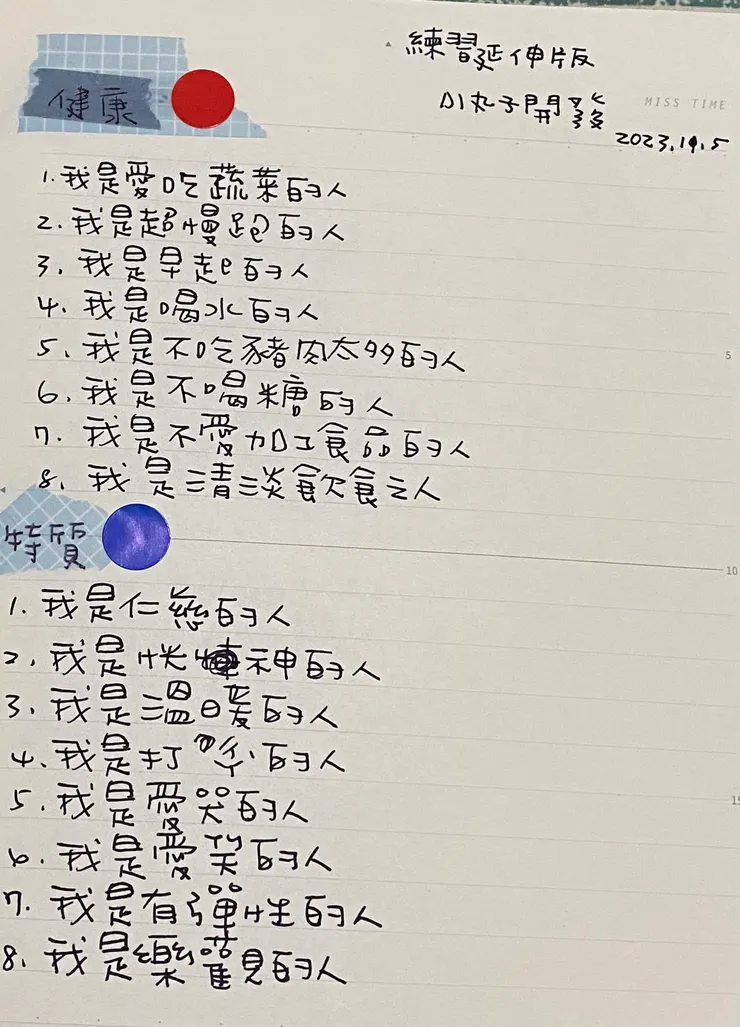 練習延伸版
健康
小丸子開發
MISS TIME
2023.10.5
1.我是愛吃蔬菜的人
2.我是超慢跑的人
3.我是早起的人
4.我是喝水的人
5.我是不吃豬肉太多的人
5
6.我是不喝糖的人
7.我是不愛加工食品的人
8.我是清淡飲食之人
特質
10
1.我是仁慈的人
2.我是恍神的人
3.我是溫暖的人
4.我是打的人
5.我是愛哭的人
15
6.我是愛笑的人
7.我是有彈性的人
8.我是樂觀的人